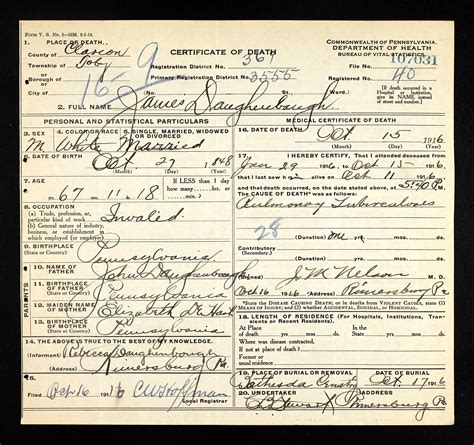 Form V. S. No. 5-
COMMONWEALTH OF PENNSYLVANIA
DEPARTMENT OF HEALTH
BUREAU OF VITAL STATISTICS
CERTIFICATE OF DEATH
1. PLACE OF DEATH,
County of Clarion
Township of Toby
or
Borough of
or
City of
16-9
Registration District No. 361
Primary Registration District No. 3555
File No. 107031
Registered No. 40
(If death occurred in a Hospital or Institution, give its NAME instead of street and number.)
2. FULL NAME James Daughenbaugh
PERSONAL AND STATISTICAL PARTICULARS
3. SEX M
4. COLOR OR RACE White
5. SINGLE, MARRIED, WIDOWED OR DIVORCED Married
6. DATE OF BIRTH Oct 27 1848
(Month) (Day) (Year)
7. AGE 67 yrs. 11 mos. 18 ds.
If LESS than 1 day
8. OCCUPATION
(a) Trade, profession, or particular kind of work
(b) General nature of industry, business, or establishment in which employed (or employer)
Invalid
9. BIRTHPLACE
(State or Country) Pennsylvania
10. NAME OF FATHER John Daughenbaugh
11. BIRTHPLACE OF FATHER
(State or Country) Pennsylvania
12. MAIDEN NAME OF MOTHER Elizabeth
13. BIRTHPLACE OF MOTHER
(State or Country) Pennsylvania
PARENTS
14. THE ABOVE IS TRUE TO THE BEST OF MY KNOWLEDGE.
(Informant) Rebecca Daughenbaugh
(Address) Rimersburg Pa
15.
Filed Oct 16 1916
Local Registrar
MEDICAL CERTIFICATE OF DEATH
16. DATE OF DEATH Oct 15 1916
(Month) (Day) (Year)
17. I HEREBY CERTIFY, That I attended deceased from
29 1916, to Oct 15 1916
that I last saw h alive on Oct 11 1916
and that death occurred, on the date stated above, at
The CAUSE OF DEATH* was as follows:
Pulmonary Tuberculosis
28
(Duration) one yrs. mos. ds.
Contributory
(Secondary)
(Duration) yrs. mos. ds.
(Signed) J M Nelson M. D.
Oct 16 1916 (Address) Rimersburg Pa
*State the DISEASE CAUSING DEATH; or, in deaths from VIOLENT CAUSES, state (1) MEANS OF INJURY; and (2) whether ACCIDENTAL, SUICIDAL or HOMICIDAL.
18. LENGTH OF RESIDENCE (For Hospitals, Institutions, Transients or Recent Residents)
At place of death yrs. mos. ds. In the State yrs. mos. ds.
Where was disease contracted, if not at place of death?
Former or usual residence
19. PLACE OF BURIAL OR REMOVAL Bethesda
DATE OF BURIAL Oct. 17 1916
20. UNDERTAKER
ADDRESS Rimersburg Pa